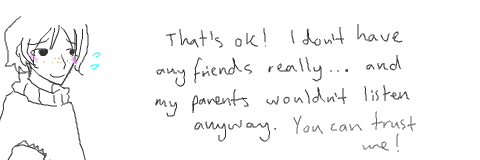 That's ok! I don't have
any friends really... and
my parents wouldn't listen
anyway. You can trust
me!